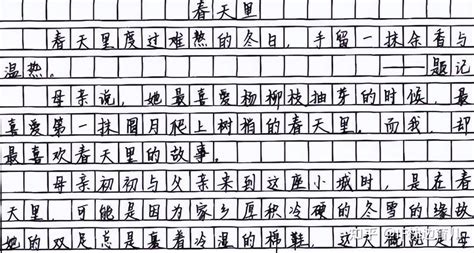 春天里
春天里度过难熬的冬日，手留一抹余香与
温热。
——题记
母亲说，她最喜爱杨柳枝抽芽的时候，最
喜爱第一抹眉月爬上树梢的春天里。而我，却
最喜欢春天里的故事。
母亲初初与父亲来到这座小城时，是在春
天里。可能是因为家乡厚积冷硬的冬雪的缘故
她的双足总是裹着冷湿的棉鞋，这大概就是母